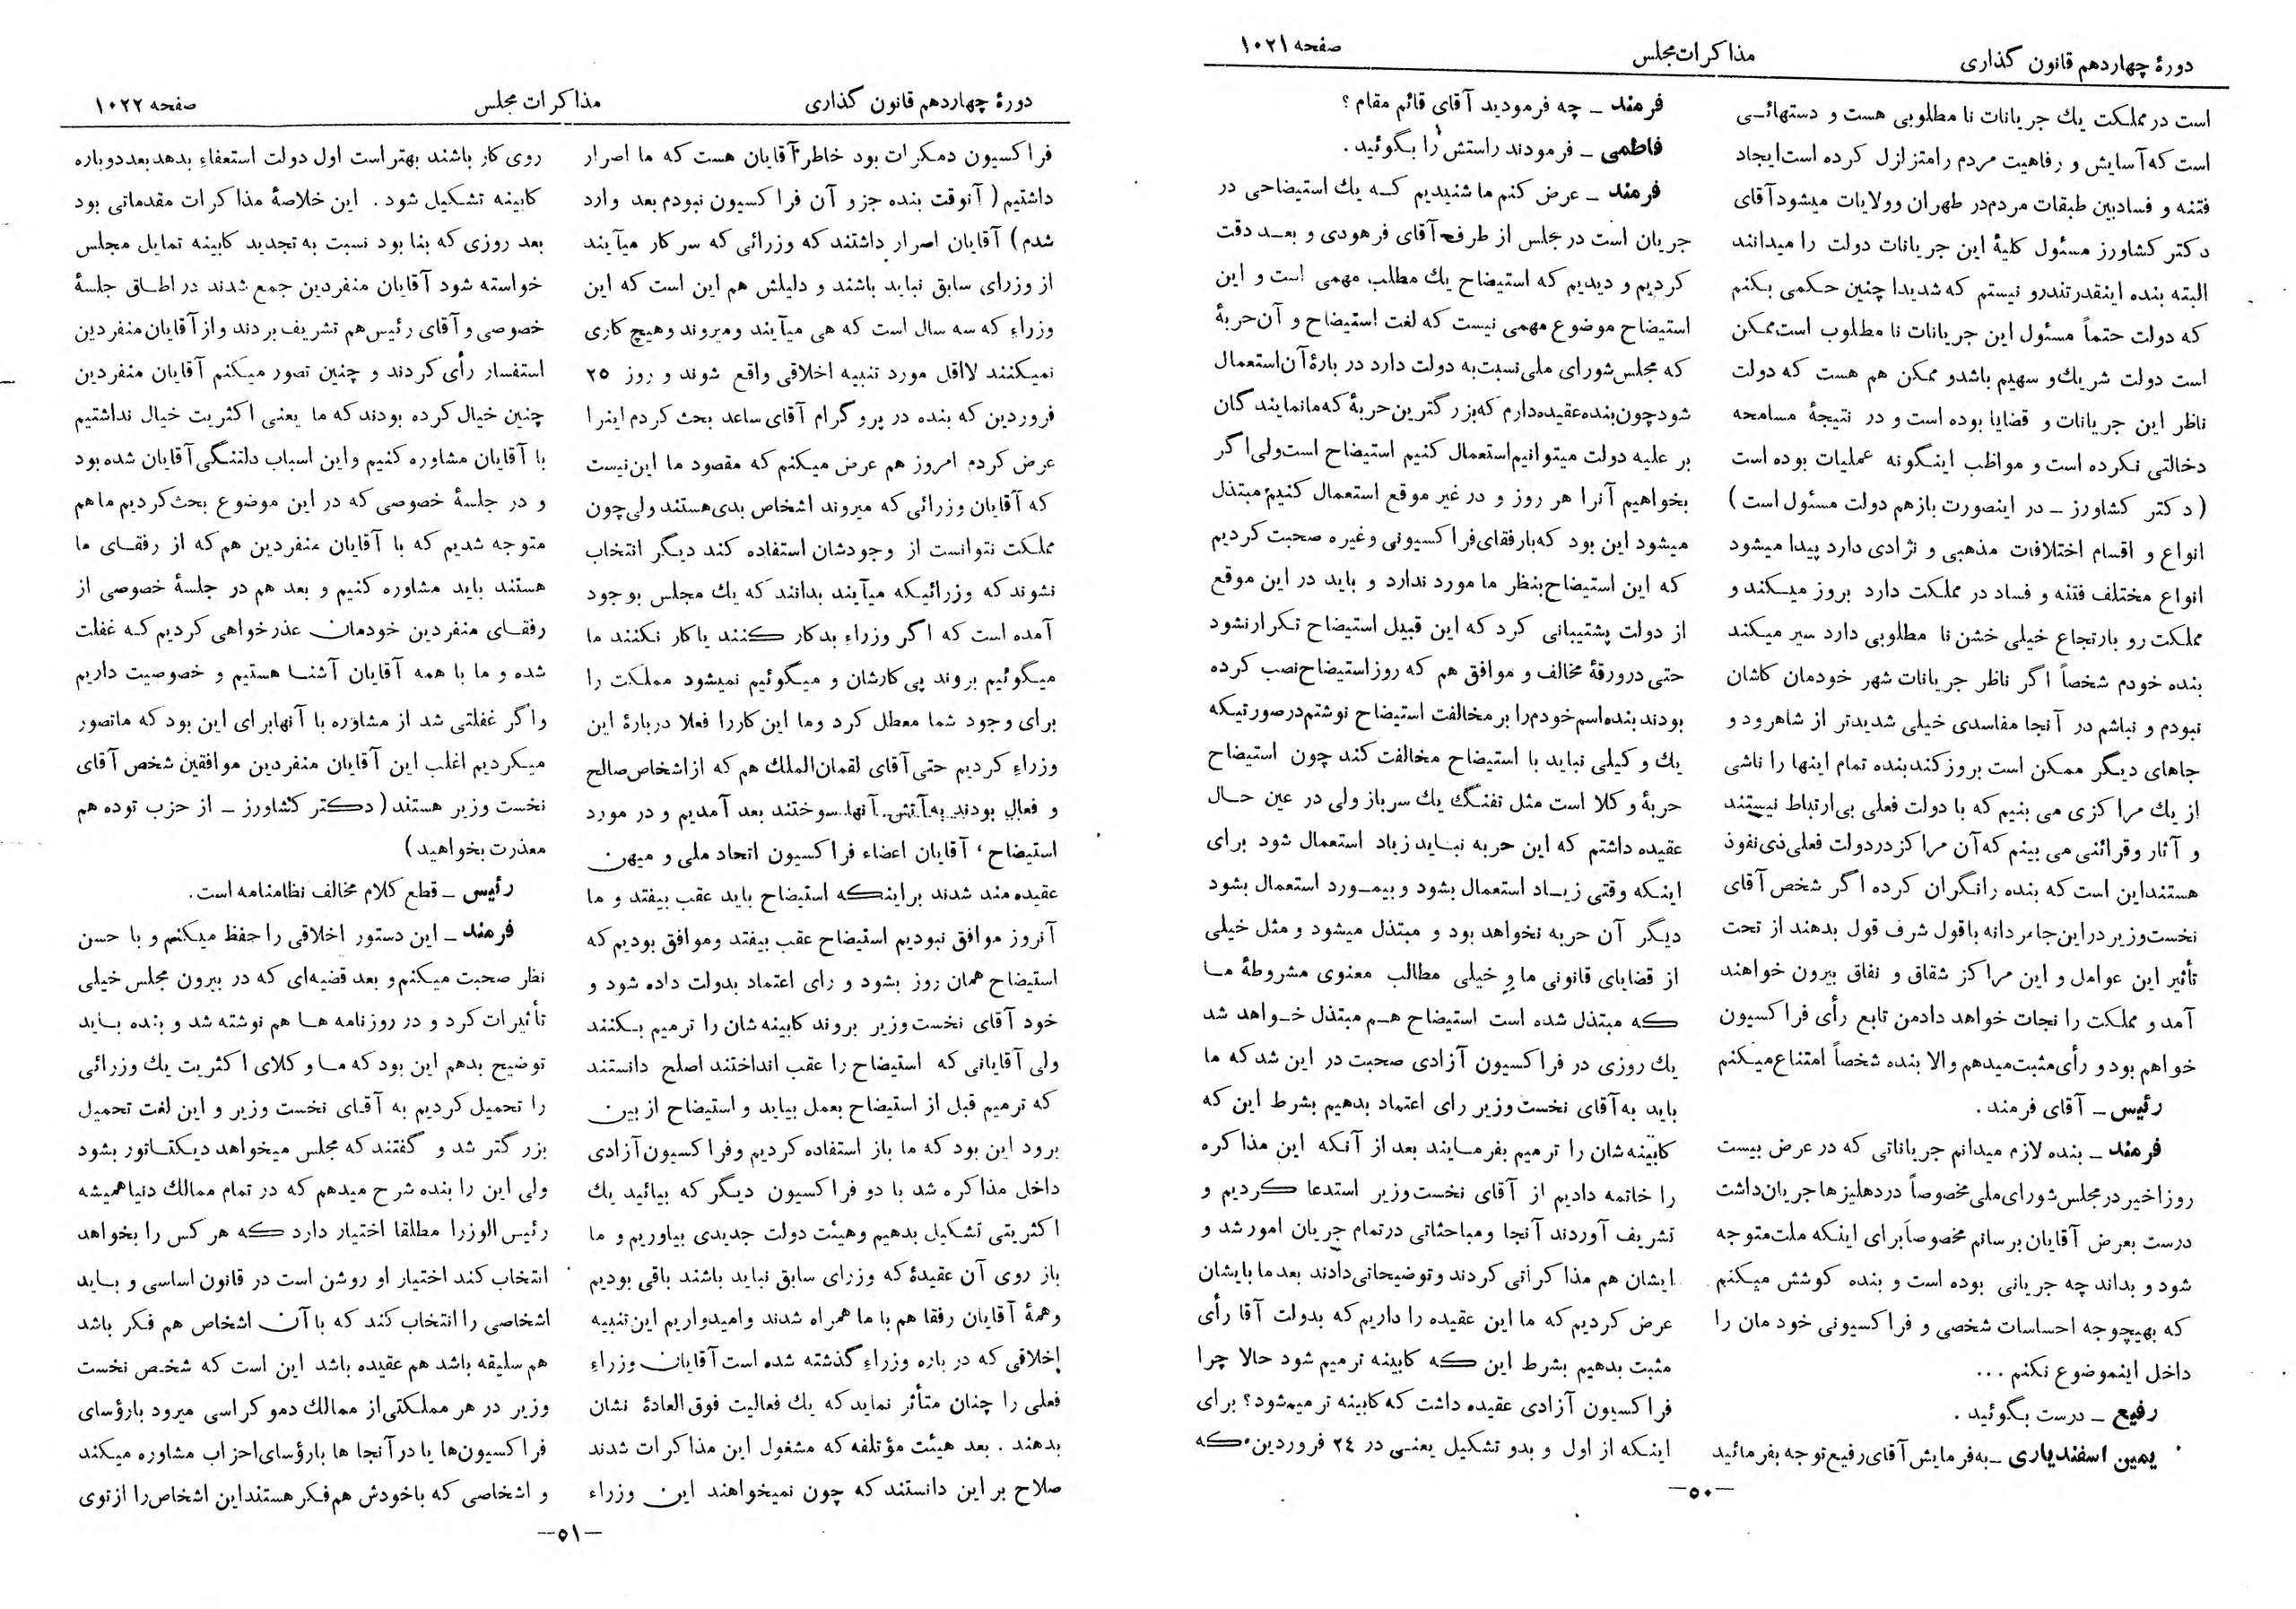 دورهٔ چهاردهم قانون گذاری
مذاکرات مجلس
صفحه ۱۰۲۱
است در مملکت یك جریانات نا مطلوبی هست و دستهائی
است که آسایش و رفاهیت مردم را متزلزل کرده است ایجاد
فتنه و فساد بین طبقات مردم در طهران و ولایات میشود آقای
دکتر کشاورز مسئول کلیهٔ این جریانات دولت را میدانند
البته بنده اینقدر تندرو نیستم که شدیدا چنین حکمی بکنم
که دولت حتماً مسئول این جریانات نا مطلوب است ممکن
است دولت شریك و سهیم باشد و ممکن هم هست که دولت
ناظر این جریانات و قضایا بوده است و در نتیجهٔ مسامحه
دخالتی نکرده است و مواظب اینگونه عملیات بوده است
(دکتر کشاورز ــ در اینصورت باز هم دولت مسئول است)
انواع و اقسام اختلافات مذهبی و نژادی دارد پیدا میشود
انواع مختلف فتنه و فساد در مملکت دارد بروز میکند و
مملکت رو بارتجاع خیلی خشن نا مطلوبی دارد سیر میکند
بنده خودم شخصاً اگر ناظر جریانات شهر خودمان کاشان
نبودم و نباشم در آنجا مفاسدی خیلی شدیدتر از شاهرود و
جاهای دیگر ممکن است بروز کند بنده تمام اینها را ناشی
از یك مراکزی می بنیم که با دولت فعلی بی ارتباط نیستند
و آثار و قرائنی می بینم که آن مراکز در دولت فعلی ذی نفوذ
هستند این است که بنده را نگران کرده اگر شخص آقای
نخست وزیر در این جا مردانه با قول شرف قول بدهند از تحت
تأثیر این عوامل و این مراکز شقاق و نفاق بیرون خواهند
آمد و مملکت را نجات خواهد داد من تابع رأی فراکسیون
خواهم بود و رأی مثبت میدهم والا بنده شخصاً امتناع میکنم
رئیس ــ آقای فرمند .
فرمند ــ بنده لازم میدانم جریاناتی که در عرض بیست
روز اخیر در مجلس شورای ملی مخصوصاً در دهلیزها جریان داشت
درست بعرض آقایان برسانم مخصوصاً برای اینکه ملت متوجه
شود و بداند چه جریانی بوده است و بنده کوشش میکنم
که بهیچوجه احساسات شخصی و فراکسیونی خودمان را
داخل اینموضوع نکنم ...
رفیع ــ درست بگوئید .
یمین اسفندیاری ــ به فرمایش آقای رفیع توجه بفرمائید
فرمند ــ چه فرمودید آقای قائم مقام ؟
فاطمی ــ فرمودند راستش را بگوئید .
فرمند ــ عرض کنم ما شنیدیم که یك استیضاحی در
جریان است در مجلس از طرف آقای فرهودی و بعد دقت
کردیم و دیدیم که استیضاح یك مطلب مهمی است و این
استیضاح موضوع مهمی نیست که لغت استیضاح و آن حربهٔ
که مجلس شورای ملی نسبت به دولت دارد در بارهٔ آن استعمال
شود چون بنده عقیده دارم که بزرگترین حربهٔ که ما نمایندگان
بر علیه دولت میتوانیم استعمال کنیم استیضاح است ولی اگر
بخواهیم آنرا هر روز و در غیر موقع استعمال کنیم مبتذل
میشود این بود که با رفقای فراکسیونی و غیره صحبت کردیم
که این استیضاح بنظر ما مورد ندارد و باید در این موقع
از دولت پشتیبانی کرد که این قبیل استیضاح تکرار نشود
حتی در ورقهٔ مخالف و موافق هم که روز استیضاح نصب کرده
بودند بنده اسم خودم را بر مخالفت استیضاح نوشتم در صورتیکه
یك وکیلی نباید با استیضاح مخالفت کند چون استیضاح
حربهٔ وکلا است مثل تفنگ یك سرباز ولی در عین حال
عقیده داشتم که این حربه نباید زیاد استعمال شود برای
اینکه وقتی زیاد استعمال بشود و بیمورد استعمال بشود
دیگر آن حربه نخواهد بود و مبتذل میشود و مثل خیلی
از قضایای قانونی ما و خیلی مطالب معنوی مشروطهٔ ما
که مبتذل شده است استیضاح هم مبتذل خواهد شد
یك روزی در فراکسیون آزادی صحبت در این شد که ما
باید به آقای نخست وزیر رای اعتماد بدهیم بشرط این که
کابینه شان را ترمیم بفرمایند بعد از آنکه این مذاکره
را خاتمه دادیم از آقای نخست وزیر استدعا کردیم و
تشریف آوردند آنجا و مباحثاتی در تمام جریان امور شد و
ایشان هم مذاکراتی کردند و توضیحاتی دادند بعد ما بایشان
عرض کردیم که ما این عقیده را داریم که بدولت آقا رأی
مثبت بدهیم بشرط این که کابینه ترمیم شود حالا چرا
فراکسیون آزادی عقیده داشت که کابینه ترمیم شود؟ برای
اینکه از اول و بدو تشکیل یعنی در ۲۴ فروردین که
ــ۵۰ــ
دورهٔ چهاردهم قانون گذاری
مذاکرات مجلس
صفحه ۱۰۲۲
فراکسیون دمکرات بود خاطر آقایان هست که ما اصرار
داشتیم (آنوقت بنده جزو آن فراکسیون نبودم بعد وارد
شدم) آقایان اصرار داشتند که وزرائی که سر کار میآیند
از وزرای سابق نباید باشند و دلیلش هم این است که این
وزراء که سه سال است که هی میآیند و میروند وهیچ کاری
نمیکنند لااقل مورد تنبیه اخلاقی واقع شوند و روز ۲۵
فروردین که بنده در پروگرام آقای ساعد بحث کردم اینرا
عرض کردم امروز هم عرض میکنم که مقصود ما این نیست
که آقایان وزرائی که میروند اشخاص بدی هستند ولی چون
مملکت نتوانست از وجودشان استفاده کند دیگر انتخاب
نشوند که وزرائیکه میآیند بدانند که یك مجلس بوجود
آمده است که اگر وزراء بد کار کنند یا کار نکنند ما
میگوئیم بروند پی کارشان و میگوئیم نمیشود مملکت را
برای وجود شما معطل کرد وما این کار را فعلا دربارهٔ این
وزراء کردیم حتی آقای لقمان الملك هم که از اشخاص صالح
و فعال بودند به آتش آنها سوختند بعد آمدیم و در مورد
استیضاح ، آقایان اعضاء فراکسیون اتحاد ملی و میهن
عقیده مند شدند بر اینکه استیضاح باید عقب بیفتد و ما
آنروز موافق نبودیم استیضاح عقب بیفتد وموافق بودیم که
استیضاح همان روز بشود و رای اعتماد بدولت داده شود و
خود آقای نخست وزیر بروند کابینه شان را ترمیم بکنند
ولی آقایانی که استیضاح را عقب انداختند اصلح دانستند
که ترمیم قبل از استیضاح بعمل بیاید و استیضاح از بین
برود این بود که ما باز استفاده کردیم وفراکسیون آزادی
داخل مذاکره شد با دو فراکسیون دیگر که بیائید یك
اکثریتی تشکیل بدهیم وهیئت دولت جدیدی بیاوریم و ما
باز روی آن عقیدهٔ که وزرای سابق نباید باشند باقی بودیم
وهمهٔ آقایان رفقا هم با ما همراه شدند وامیدواریم این تنبیه
اخلاقی که در باره وزراء گذشته شده است آقایان وزراء
فعلی را چنان متأثر نماید که یك فعالیت فوق العادهٔ نشان
بدهند . بعد هیئت مؤتلفه که مشغول این مذاکرات شدند
صلاح بر این دانستند که چون نمیخواهند این وزراء
روی کار باشند بهتر است اول دولت استعفاء بدهد بعد دوباره
کابینه تشکیل شود . این خلاصهٔ مذاکرات مقدماتی بود
بعد روزی که بنا بود نسبت به تجدید کابینه تمایل مجلس
خواسته شود آقایان منفردین جمع شدند در اطاق جلسهٔ
خصوصی و آقای رئیس هم تشریف بردند و از آقایان منفردین
استفسار رأی کردند و چنین تصور میکنم آقایان منفردین
چنین خیال کرده بودند که ما یعنی اکثریت خیال نداشتیم
با آقایان مشاوره کنیم و این اسباب دلتنگی آقایان شده بود
و در جلسهٔ خصوصی که در این موضوع بحث کردیم ما هم
متوجه شدیم که با آقایان منفردین هم که از رفقای ما
هستند باید مشاوره کنیم و بعد هم در جلسهٔ خصوصی از
رفقای منفردین خودمان عذر خواهی کردیم که غفلت
شده و ما با همه آقایان آشنا هستیم و خصوصیت داریم
واگر غفلتی شد از مشاوره با آنها برای این بود که ما تصور
میکردیم اغلب این آقایان منفردین موافقین شخص آقای
نخست وزیر هستند (دکتر کشاورز ــ از حزب توده هم
معذرت بخواهید)
رئیس ــ قطع کلام مخالف نظامنامه است.
فرمند ــ این دستور اخلاقی را حفظ میکنم و با حسن
نظر صحبت میکنم و بعد قضیه ای که در بیرون مجلس خیلی
تأثیرات کرد و در روزنامه ها هم نوشته شد و بنده باید
توضیح بدهم این بود که ما وکلای اکثریت یك وزرائی
را تحمیل کردیم به آقای نخست وزیر و این لغت تحمیل
بزرگتر شد و گفتند که مجلس میخواهد دیکتاتور بشود
ولی این را بنده شرح میدهم که در تمام ممالك دنیا همیشه
رئیس الوزرا مطلقا اختیار دارد که هر کس را بخواهد
انتخاب کند اختیار او روشن است در قانون اساسی و باید
اشخاصی را انتخاب کند که با آن اشخاص هم فکر باشد
هم سلیقه باشد هم عقیده باشد این است که شخص نخست
وزیر در هر مملکتی از ممالك دموکراسی میرود با رؤسای
فراکسیون ها یا در آنجا ها با رؤسای احزاب مشاوره میکند
و اشخاصی که با خودش هم فکر هستند این اشخاص را از توی
ــ۵۱ــ